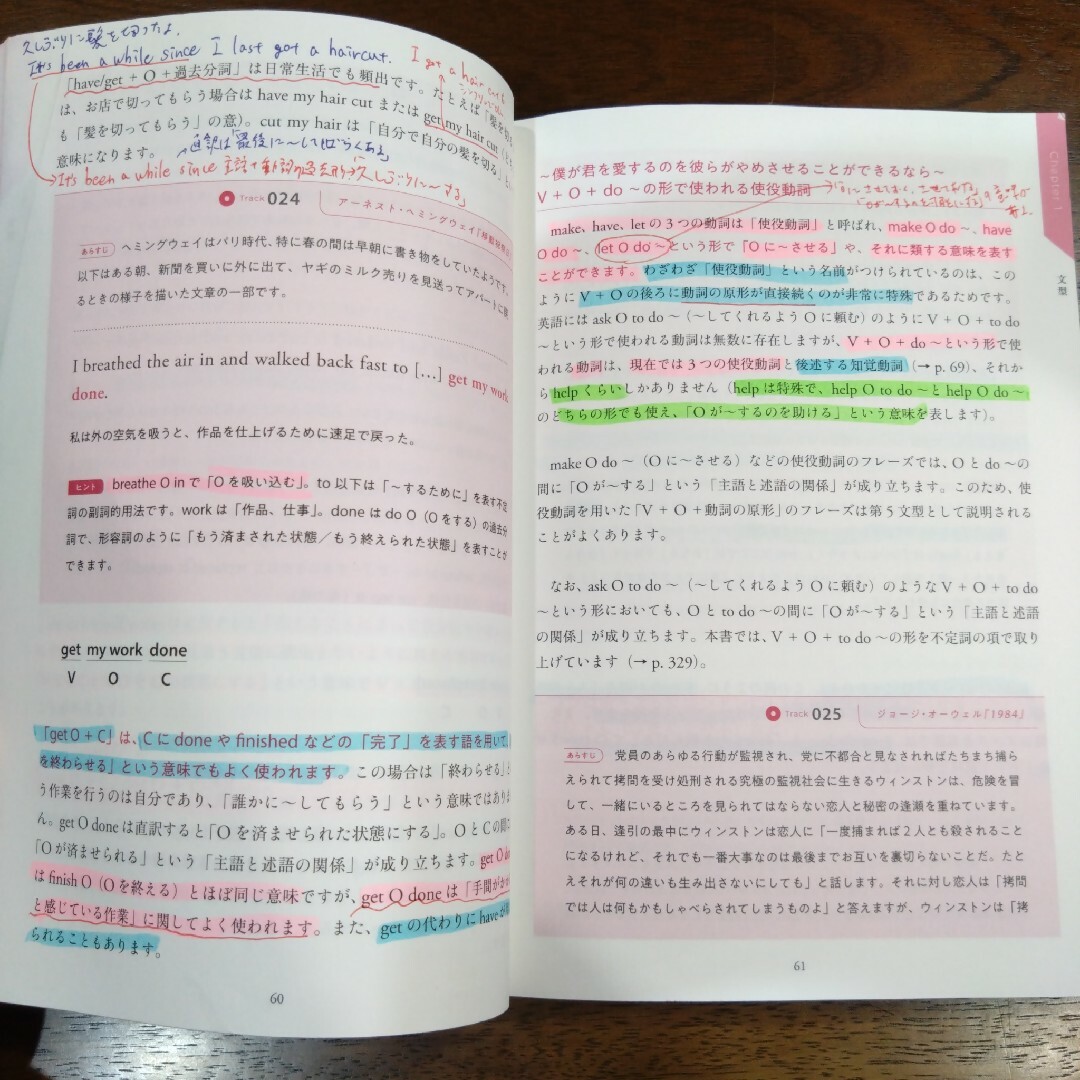 久しぶりに髪を切ったよ.
It's been a while since I last got a haircut.
I got a hair cut
「have/get + O + 過去分詞」は日常生活でも頻出です。たとえば「髪を切
は、お店で切ってもらう場合は have my hair cut または get my hair cut（と
も「髪を切ってもらう」の意）。cut my hair は「自分で自分の髪を切る」とい
意味になります。
直訳は「最後に〜してしばらくある」
It's been a while since 主語+動詞の過去形 久しぶりに〜する」
Track 024
アーネスト・ヘミングウェイ『移動祝祭日
あらすじ ヘミングウェイはパリ時代、特に春の間は早朝に書き物をしていたようです。
以下はある朝、新聞を買いに外に出て、ヤギのミルク売りを見送ってアパートに戻
るときの様子を描いた文章の一部です。
I breathed the air in and walked back fast to [...] get my work
done.
私は外の空気を吸うと、作品を仕上げるために速足で戻った。
ヒント breathe O in で「O を吸い込む」。to 以下は「～するために」を表す不定
詞の副詞的用法です。work は「作品、仕事」。done は do O（O をする）の過去分
詞で、形容詞のように「もう済まされた状態／もう終えられた状態」を表すことが
できます。
get my work done
V O C
「get O + C」は、C に done や finished などの「完了」を表す語を用いて
を終わらせる」という意味でもよく使われます。この場合は「終わらせる」
う作業を行うのは自分であり、「誰かに～してもらう」という意味ではありま
ん。get O done は直訳すると「O を済ませられた状態にする」。O と C の間に
「O が済ませられる」という「主語と述語の関係」が成り立ちます。get O do
は finish O（O を終える）とほぼ同じ意味ですが、get O done は「手間がか
と感じている作業」に関してよく使われます。また、get の代わりに have が
られることもあります。
60
Chapter 1
文型
～僕が君を愛するのを彼らがやめさせることができるなら～
V + O + do ～の形で使われる使役動詞
make、have、let の 3 つの動詞は「使役動詞」と呼ばれ、make O do ～、have
O do ～、let O do ～という形で「O に～させる」や、それに類する意味を表す
ことができます。わざわざ「使役動詞」という名前がつけられているのは、この
ように V + O の後ろに動詞の原形が直接続くのが非常に特殊であるためです。
英語には ask O to do ～（～してくれるよう O に頼む）のように V + O + to do
～という形で使われる動詞は無数に存在しますが、V + O + do ～という形で使
われる動詞は、現在では 3 つの使役動詞と後述する知覚動詞（→ p. 69）、それか
ら help くらいしかありません（help は特殊で、help O to do ～と help O do ～
のどちらの形でも使え、「O が～するのを助ける」という意味を表します）。
make O do ～（O に～させる）などの使役動詞のフレーズでは、O と do ～の
間に「O が～する」という「主語と述語の関係」が成り立ちます。このため、使
役動詞を用いた「V + O + 動詞の原形」のフレーズは第 5 文型として説明される
ことがよくあります。
なお、ask O to do ～（～してくれるよう O に頼む）のような V + O + to do
～という形においても、O と to do ～の間に「O が～する」という「主語と述語
の関係」が成り立ちます。本書では、V + O + to do ～の形を不定詞の項で取り
上げています（→ p. 329）。
Track 025
ジョージ・オーウェル『1984』
あらすじ 党員のあらゆる行動が監視され、党に不都合と見なされればたちまち捕ら
えられて拷問を受け処刑される究極の監視社会に生きるウィンストンは、危険を冒
して、一緒にいるところを見られてはならない恋人と秘密の逢瀬を重ねています。
ある日、逢引の最中にウィンストンは恋人に「一度捕まれば 2 人とも殺されること
になるけれど、それでも一番大事なのは最後までお互いを裏切らないことだ。たと
えそれが何の違いも生み出さないにしても」と話します。それに対し恋人は「拷問
では人は何もかもしゃべらされてしまうものよ」と答えますが、ウィンストンは「拷
61